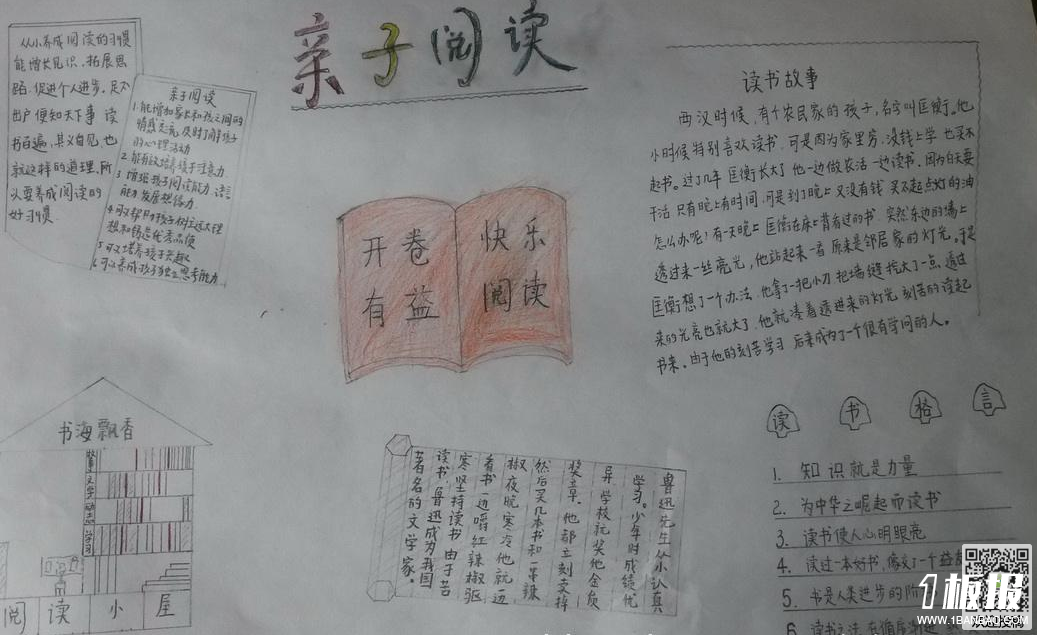 亲子阅读
从小养成阅读的习惯
能增长见识，拓展思
路，促进个人进步。足不
出户便知天下事 读
书百遍，其义自见，也
就这样的道理，所
以要养成阅读的
好习惯
亲子阅读
1.能增和家长和孩之间的
情感交流，及时了解孩子
的心理活动
2.能有效培养孩子注意力
3.增强孩子阅读能力、语言
能力，发展想络力
4.可以帮助孩子树立远大理
想和锈总优秀品便
5.可以培养孩子兴趣
6.可以养成孩子独立思考能力
开卷
有益
快乐
阅读
读书故事
西汉时候，有个农民家的孩子，名字叫匡衡。他
小时候特别喜欢读书，可是因为家里穷，没钱上学，也买不
起书。过了几年 匡衡长大了 他一边做农活一边读书。因为白天要
干活，只有晚上有时间，可是到了晚上 又没有钱 买不起点灯的油
怎么办呢？有一天晚上 匡衡在床上背看过的书，突然东边的墙上
透过来一丝亮光，他站起来一看 原来是邻居家的灯光，于是
匡衡想了一个办法，他拿了一把小刀 把墙缝挖大了一点，透过
来的光亮也就大了，他就凑着透进来的灯光 刻苦的读起
书来。由于他的刻苦学习，后来成为了一个很有学问的人。
书海飘香
故事
文学
励志
学习
阅读小屋
鲁迅先生从小认真
学习。少年时成绩优
异，学校就奖他金质
奖章。他都立刻卖掉
然后买几本书和一串辣
椒，夜晚寒冷他就边
看书一边嚼红辣椒驱
寒坚持读书，由于苦
读书，鲁迅成为我国
著名的文学家。
读书格言
1. 知识就是力量
2. 为中华之崛起而读书
3. 读书使人心明眼亮
4. 读过一本好书，像交了一个益友
5. 书是人类进步的阶
6. 读书之法 在循序
1板报
WWW.1BANBAO.COM